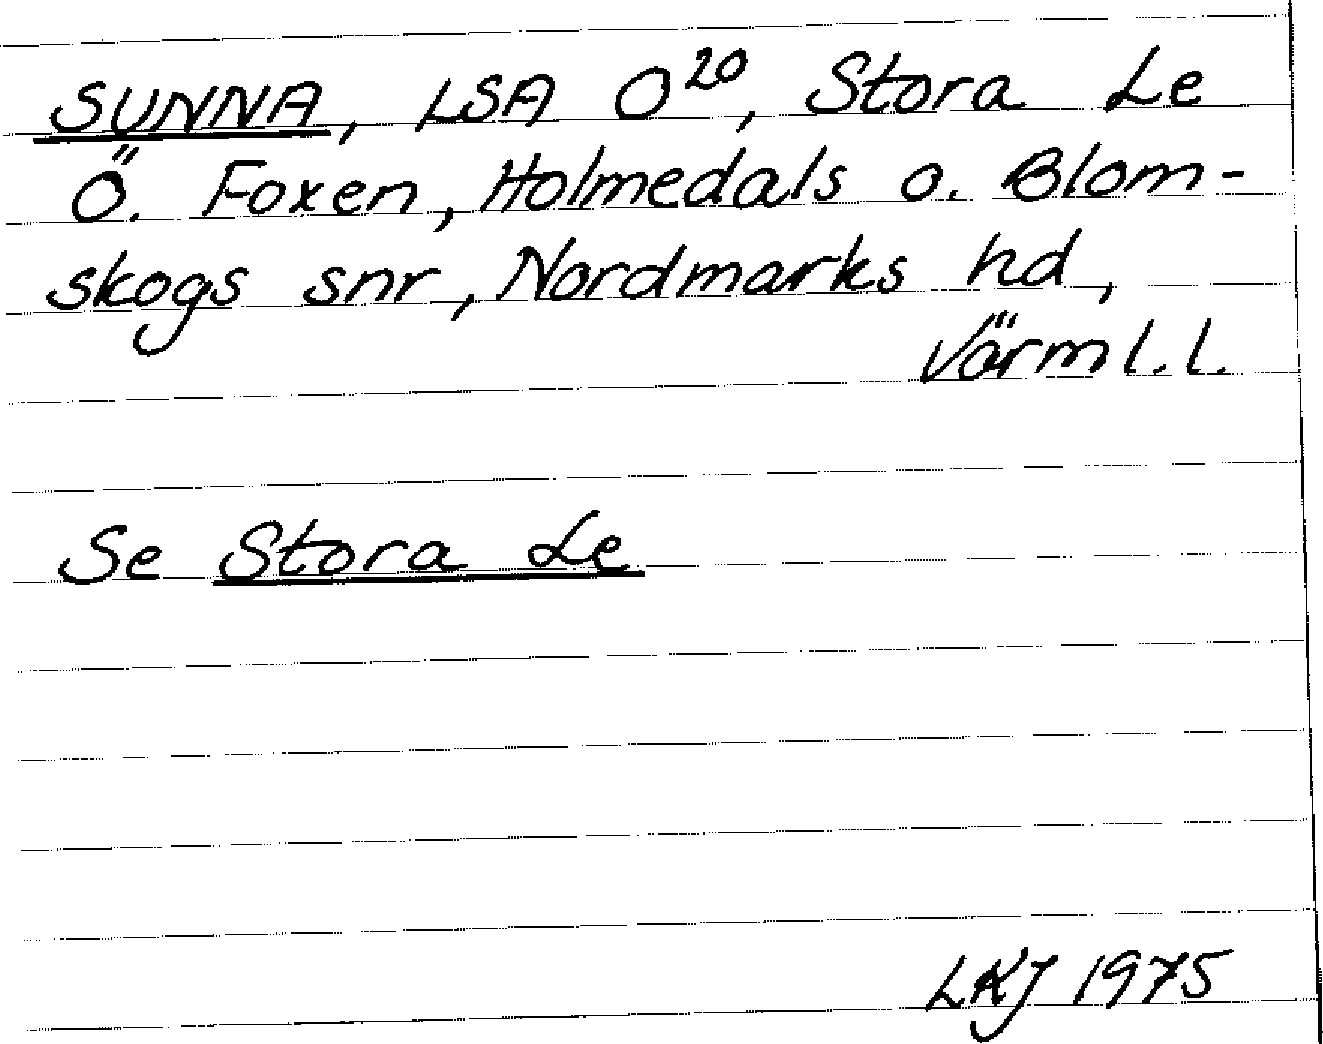 SUNNA, LSA O²⁰, Stora Le
Ö. Foxen, Holmedals o. Blom-
skogs snr, Nordmarks hd,
Värml. l.
Se Stora Le
LKJ 1975